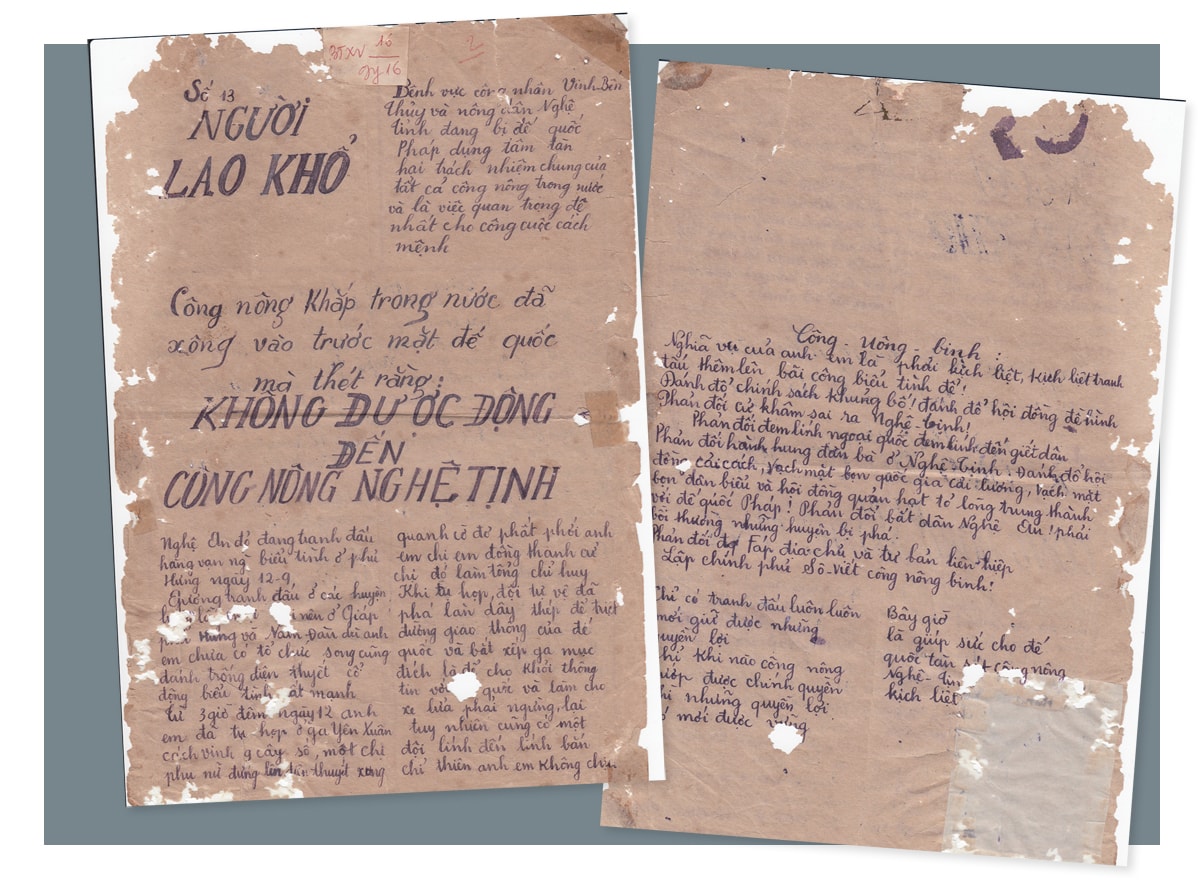 Số 13
NGƯỜI
LAO KHỔ
Bênh vực công nhân Vinh-Bến
Thủy và nông dân Nghệ
tĩnh đang bị đế quốc
Pháp dụng tâm tàn
hại trách nhiệm chung của
tất cả công nông trong nước
và là việc quan trọng đệ
nhất cho công cuộc cách
mệnh
Công nông khắp trong nước đã
xông vào trước mặt đế quốc
mà thét rằng:
KHÔNG ĐƯỢC ĐỘNG
ĐẾN
CÔNG NÔNG NGHỆ TỊNH
Nghệ An đỏ đang tranh đấu
hàng vạn ng biểu tình ở phủ
Hưng ngày 12-9,
tranh đấu ở các huyện
nên ở Giáp
Hưng và Nam Đàn dù anh
em chưa có tổ chức song cũng
đánh trống diễn thuyết cổ
động biểu tình rất mạnh
Từ 3 giờ đêm ngày 12 anh
em đã tụ họp ở ga Yên Xuân
cách vinh 9 cây số một chị
phụ nữ đứng lên diễn thuyết xung
quanh cờ đỏ phất phới anh
em chị em đồng thanh cử
chị đó làm tổng chỉ huy
Khi tụ họp, đội tự vệ đã
phá làn dây thép để triệt
đường giao thông của đế
quốc và bắt xếp ga mục
đích là để cho khỏi thông
tin với quốc và làm cho
xe lửa phải ngừng lại
tuy nhiên cũng có một
đội lính đến lính bắn
chỉ thiên anh em không chịu
Công-nông-binh:
Nghĩa vụ của anh em là phải kịch liệt, kịch liệt tranh
đấu thêm lên bãi công biểu tình đề!
Đánh đổ chính sách khủng bố! đánh đổ hội đồng đề hình
Phản đối cử khâm sai ra Nghệ-tịnh!
Phản đối đem lính ngoại quốc đem lính đến giết dân
Phản đối hành hung đàn bà ở Nghệ-tịnh. Đánh đổ hội
đồng cải cách, vạch mặt bọn quốc gia cải lương, vạch mặt
bọn dân biểu và hội đồng quản hạt tỏ lòng trung thành
với đế quốc Pháp! Phản đối bắt dân Nghệ An! phải
bồi thường những huyện bị phá.
Phản đối Fáp địa chủ và tư bản liên hiệp
Lập chính phủ Sô-viết công nông binh!
Chỉ có tranh đấu luôn luôn
mới giữ được những
quyền lợi
Chỉ khi nào công nông
cướp được chính quyền
thì những quyền lợi
đó mới được vững
Bây giờ
là giúp sức cho đế
quốc tàn sát công nông
Nghệ-tịn
kịch liệt